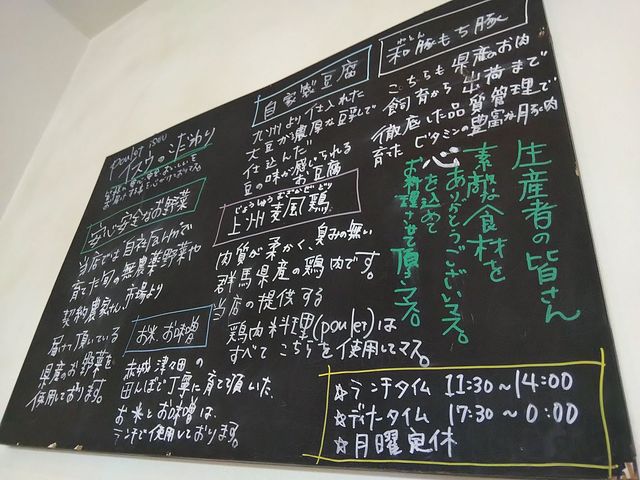 poulet isou
イスウのこだわり
安心安全なお野菜
当店では自社農んかで
育てた旬の無農薬野菜や
契約農家さん、市場より
届けて頂いている
県産のお野菜を
使用しております。
お米、お味噌
赤城 津久田の
田んぼで丁寧に育て頂いた、
お米とお味噌は、
ランチで使用しております。
自家製豆腐
九州より仕入れた
大豆が濃厚な豆乳で
仕込んだ
豆の味が感じられる
お豆腐
じょうしゅうむぎかぜどり
上州麦風鶏
肉質が柔かく、臭みの無い
群馬県産の鶏肉です。
当店の提供する
鶏肉料理(poulet)は
すべてこちらを使用してマス。
わとん
和豚もち豚
こちらも県産のお肉
飼育から出荷まで
徹底した品質管理で
育てたビタミンの豊富な豚肉
生産者の皆さん
素敵な食材を
ありがとうございマス。
心を込めて
お料理させて頂きマス。
☆ランチタイム 11:30~14:00
☆ディナータイム 17:30~0:00
☆月曜定休